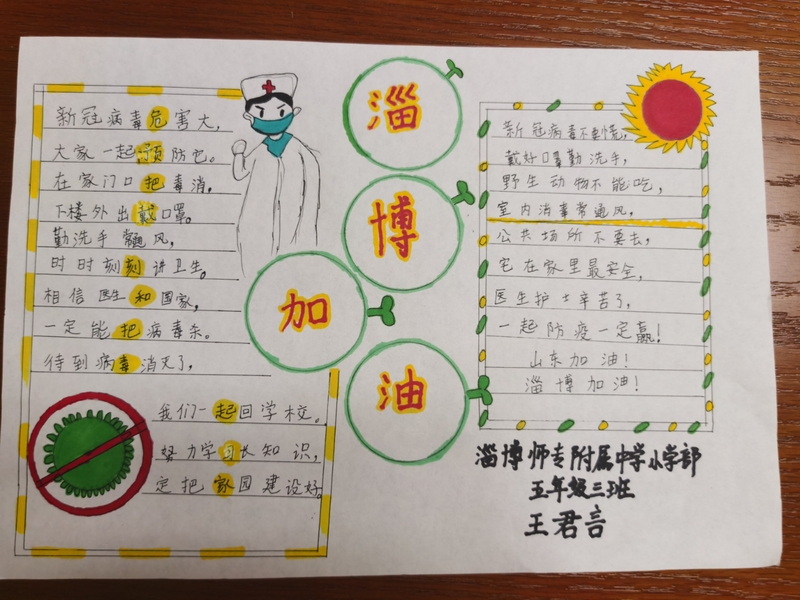 新冠病毒危害大，
大家一起预防它。
在家门口把毒消，
下楼外出戴口罩。
勤洗手常通风，
时时刻刻讲卫生。
相信医生和国家，
一定能把病毒杀。
待到病毒消灭了，
我们一起回学校。
努力学习长知识，
定把家园建设好。
淄
博
加
油
新冠病毒不要慌，
戴好口罩勤洗手，
野生动物不能吃，
室内消毒常通风，
公共场所不要去，
宅在家里最安全，
医生护士辛苦了，
一起防疫一定赢！
山东加油！
淄博加油！
淄博师专附属中学小学部
五年级三班
王君言